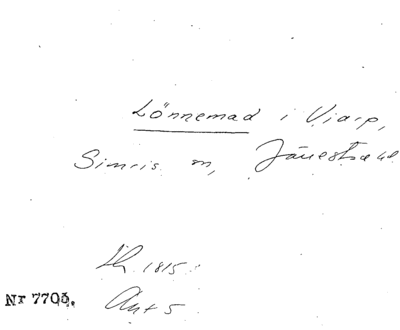 Lönnemad i Viarp,
Simris sn, Järrestads hd
Lh 1815
Nr 7705. Ant 5